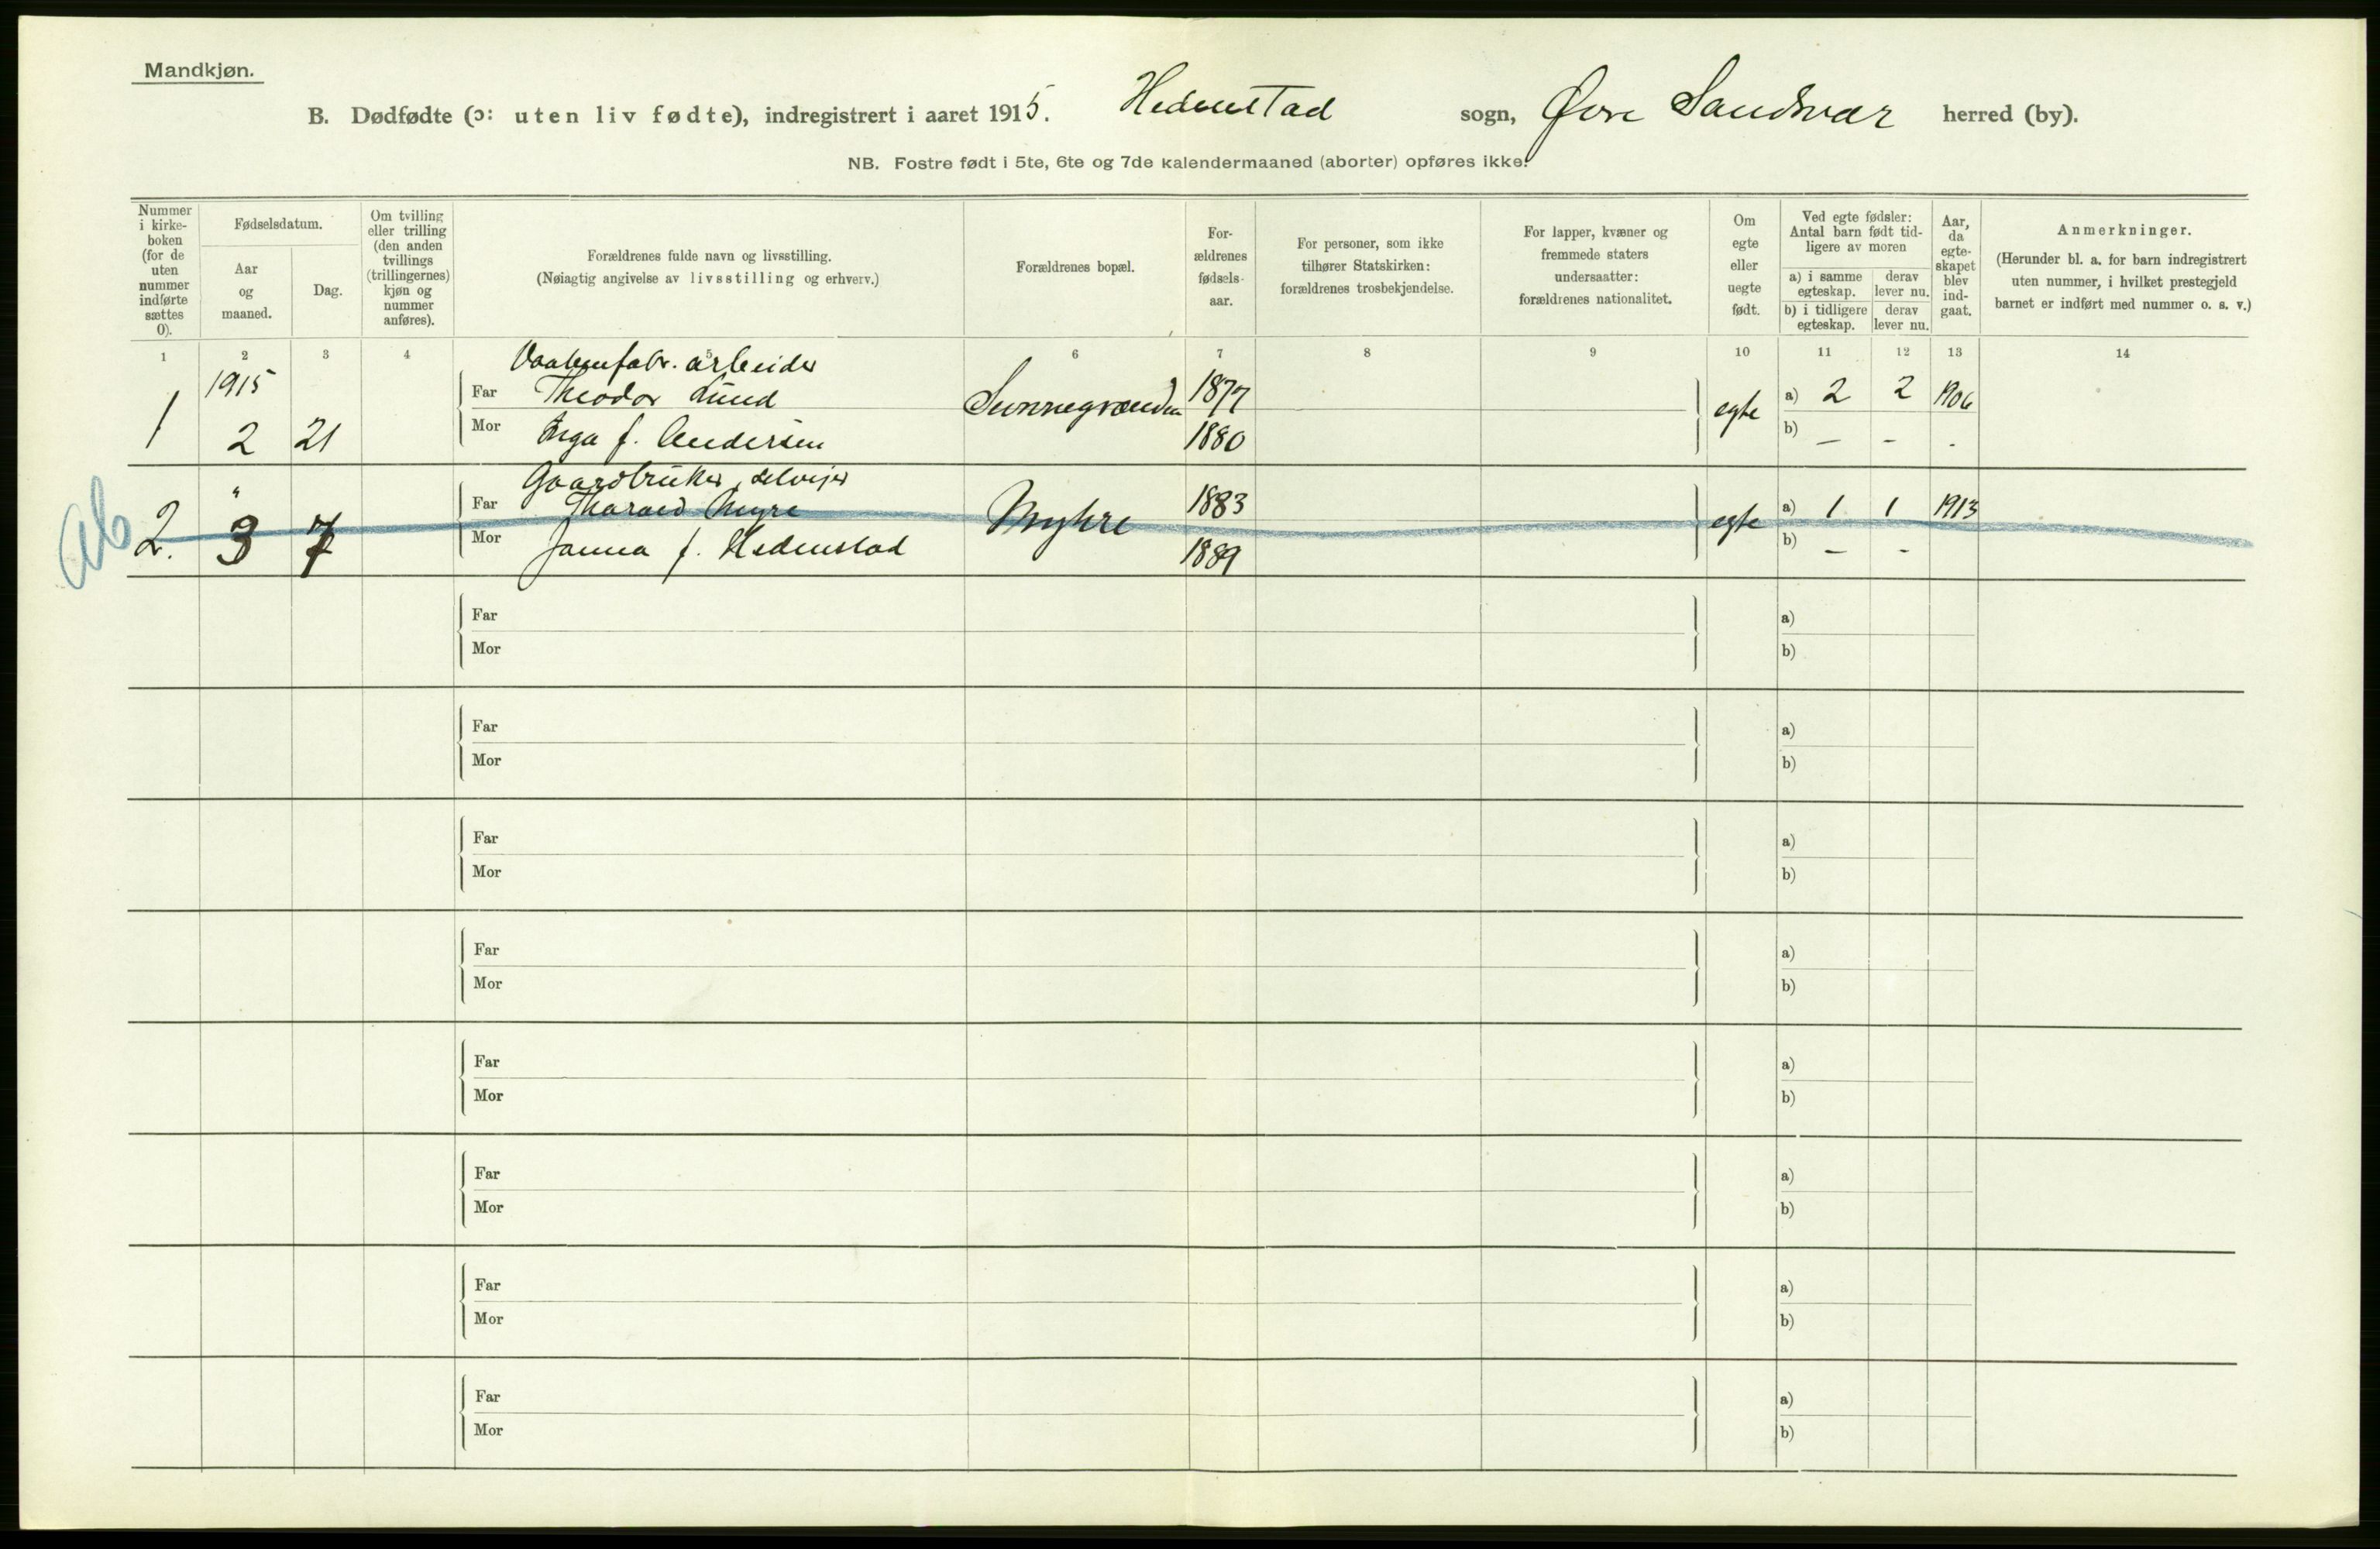 Mandkjøn.
B. Dødfødte (ɔ: uten liv fødte), indregistrert i aaret 1915. Hedenstad sogn, Øvre Sandsvær herred (by).
NB. Fostre født i 5te, 6te og 7de kalendermaaned (aborter) opføres ikke.
Nummer i kirke-boken (for de uten nummer indførte sættes 0).
Fødselsdatum.
Aar og maaned.
Dag.
Om tvilling eller trilling (den anden tvillings (trillingernes) kjøn og nummer anføres).
Forældrenes fulde navn og livsstilling.
(Nøiagtig angivelse av livsstilling og erhverv.)
Forældrenes bopæl.
For-ældrenes fødsels-aar.
For personer, som ikke tilhører Statskirken: forældrenes trosbekjendelse.
For lapper, kvæner og fremmede staters undersaatter: forældrenes nationalitet.
Om egte eller uegte født.
Ved egte fødsler: Antal barn født tid-ligere av moren
a) i samme egteskap. derav lever nu.
b) i tidligere egteskap. derav lever nu.
Aar, da egte-skapet blev ind-gaat.
Anmerkninger.
(Herunder bl. a. for barn indregistrert uten nummer, i hvilket prestegjeld barnet er indført med nummer o. s. v.)
1 2 3 4 5 6 7 8 9 10 11 12 13 14
Vaabenfabr. arbeider
1915 Far Theodor Lund 1877 a) 2 2 1906
1 2 21 Mor Inga f. Andersen 1880 egte b) — - -
Gaardbruker, selveier
" Far Myre Myhre 1883 a) 1 1 1913
ab 2. 3 7 Mor Janna f. Hedenstad 1889 egte b) — -
Far a)
Mor b)
Far a)
Mor b)
Far a)
Mor b)
Far a)
Mor b)
Far a)
Mor b)
Far a)
Mor b)
Far a)
Mor b)
Far a)
Mor b)